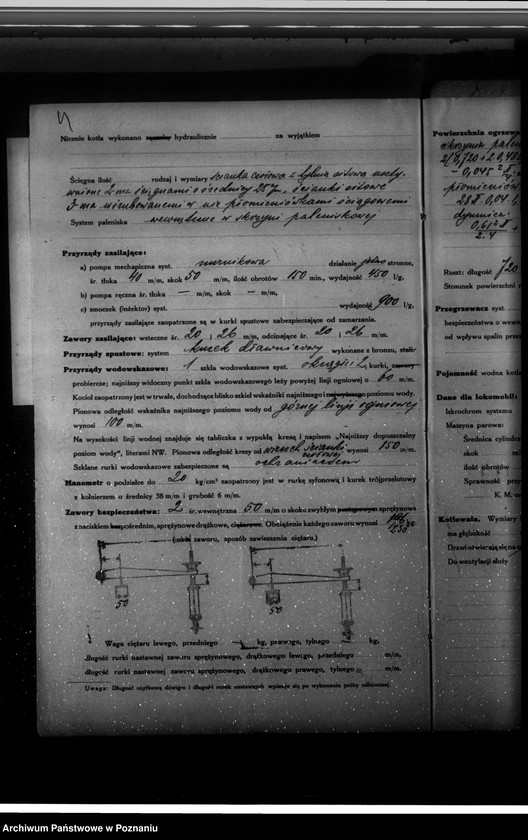 4
Nicenie kotła wykonano hydraulicznie za wyjątkiem
Ściegna ilość rodzaj i wymiary ścianka czołowa z tylną sitową
2-ma ściągnami o średnicy 25 , ścianki sitowe
3-ma w nie płomieniówkami ściągowemi
System paleniska wewnętrzne w skrzyni paleniskowej
Przyrządy zasilające:
a) pompa mechaniczna syst. nurnikowa działanie jedno stronne,
śr. tłoka 40 m/m, skok 50 m/m, ilość obrotów 150 min., wydajność 450 l/g,
b) pompa ręczna śr. tłoka — m/m, skok — m/m,
c) smoczek (inżektor) syst. wydajność 900 l/g,
przyrządy zasilające zaopatrzone są w kurki spustowe zabezpieczające od zamarzania.
Zawory zasilające: wsteczne śr. 20 i 26 m/m, odcinające śr. 20 i 26 m/m.
Przyrządy spustowe: system kurek dławnicowy wykonane z bronzu,
Przyrządy wodowskazowe: 1 szkła wodowskazowe syst. okrągłe i 2 kurki,
probiercze; najniższy widoczny punkt szkła wodowskazowego leży powyżej linji ogniowej o 60 m/m.
Kocioł zaopatrzony jest w trwałe, dochodzące blisko szkieł wskaźniki najniższego i najwyższego poziomu wody.
Pionowa odległość wskaźnika najniższego poziomu wody od górnej linji ogniowej
wynosi 100 m/m.
Na wysokości linji wodnej znajduje się tabliczka z wypukłą kresą i napisem „Najniższy dopuszczalny
poziom wody", literami NW. Pionowa odległość kresy od wierzch ścianki czołowej wynosi 150 m/m.
Szklane rurki wodowskazowe zabezpieczone są
Manometr o podziałce do 20 kg/cm² zaopatrzony jest w rurkę syfonową i kurek trójprzelotowy
z kołnierzem o średnicy 38 m/m i grubość 6 m/m.
Zawory bezpieczeństwa: 2 śr. wewnętrzna 50 m/m o skoku zwykłym sprężynowe
z naciskiem pośrednim, sprężynowe drążkowe, ciężarowe. Obciążenie każdego zaworu wynosi kg
(szkic zaworu, sposób zawieszenia ciężaru.)
50
50
Waga ciężaru lewego, przedniego — kg, prawego, tylnego — kg,
długość rurki nastawnej zaworu sprężynowego, drążkowego lewego, przedniego m/m,
długość rurki nastawnej zaworu sprężynowego, drążkowego prawego, tylnego m/m.
Uwaga: Długość użytkową dźwigu i długość rurek nastawnych wpisuje się po wykonaniu próby odbiorczej.
Powierzchnia ogrzewa
skrzynia palen
2(0,720 + 2 0,48
- 0,045²
płomieniów
28
dymnica:
2.4
Ruszt: długość 720
Stosunek powierzchni
Przegrzewacz syst.
bezpieczeństwa o wewnę
od wpływu spalin prze
Pojemność wodna kotła
Dane dla lokomobil:
Iskrochron systemu
Maszyna parowa:
Średnica cylindra
skok
ilość obrotów
Sprawność przy
K. M.
Kotłownia. Wymiary
ma głębokość
Drzwi otwierają się na
Do wentylacji służy
Archiwum Państwowe w Poznaniu